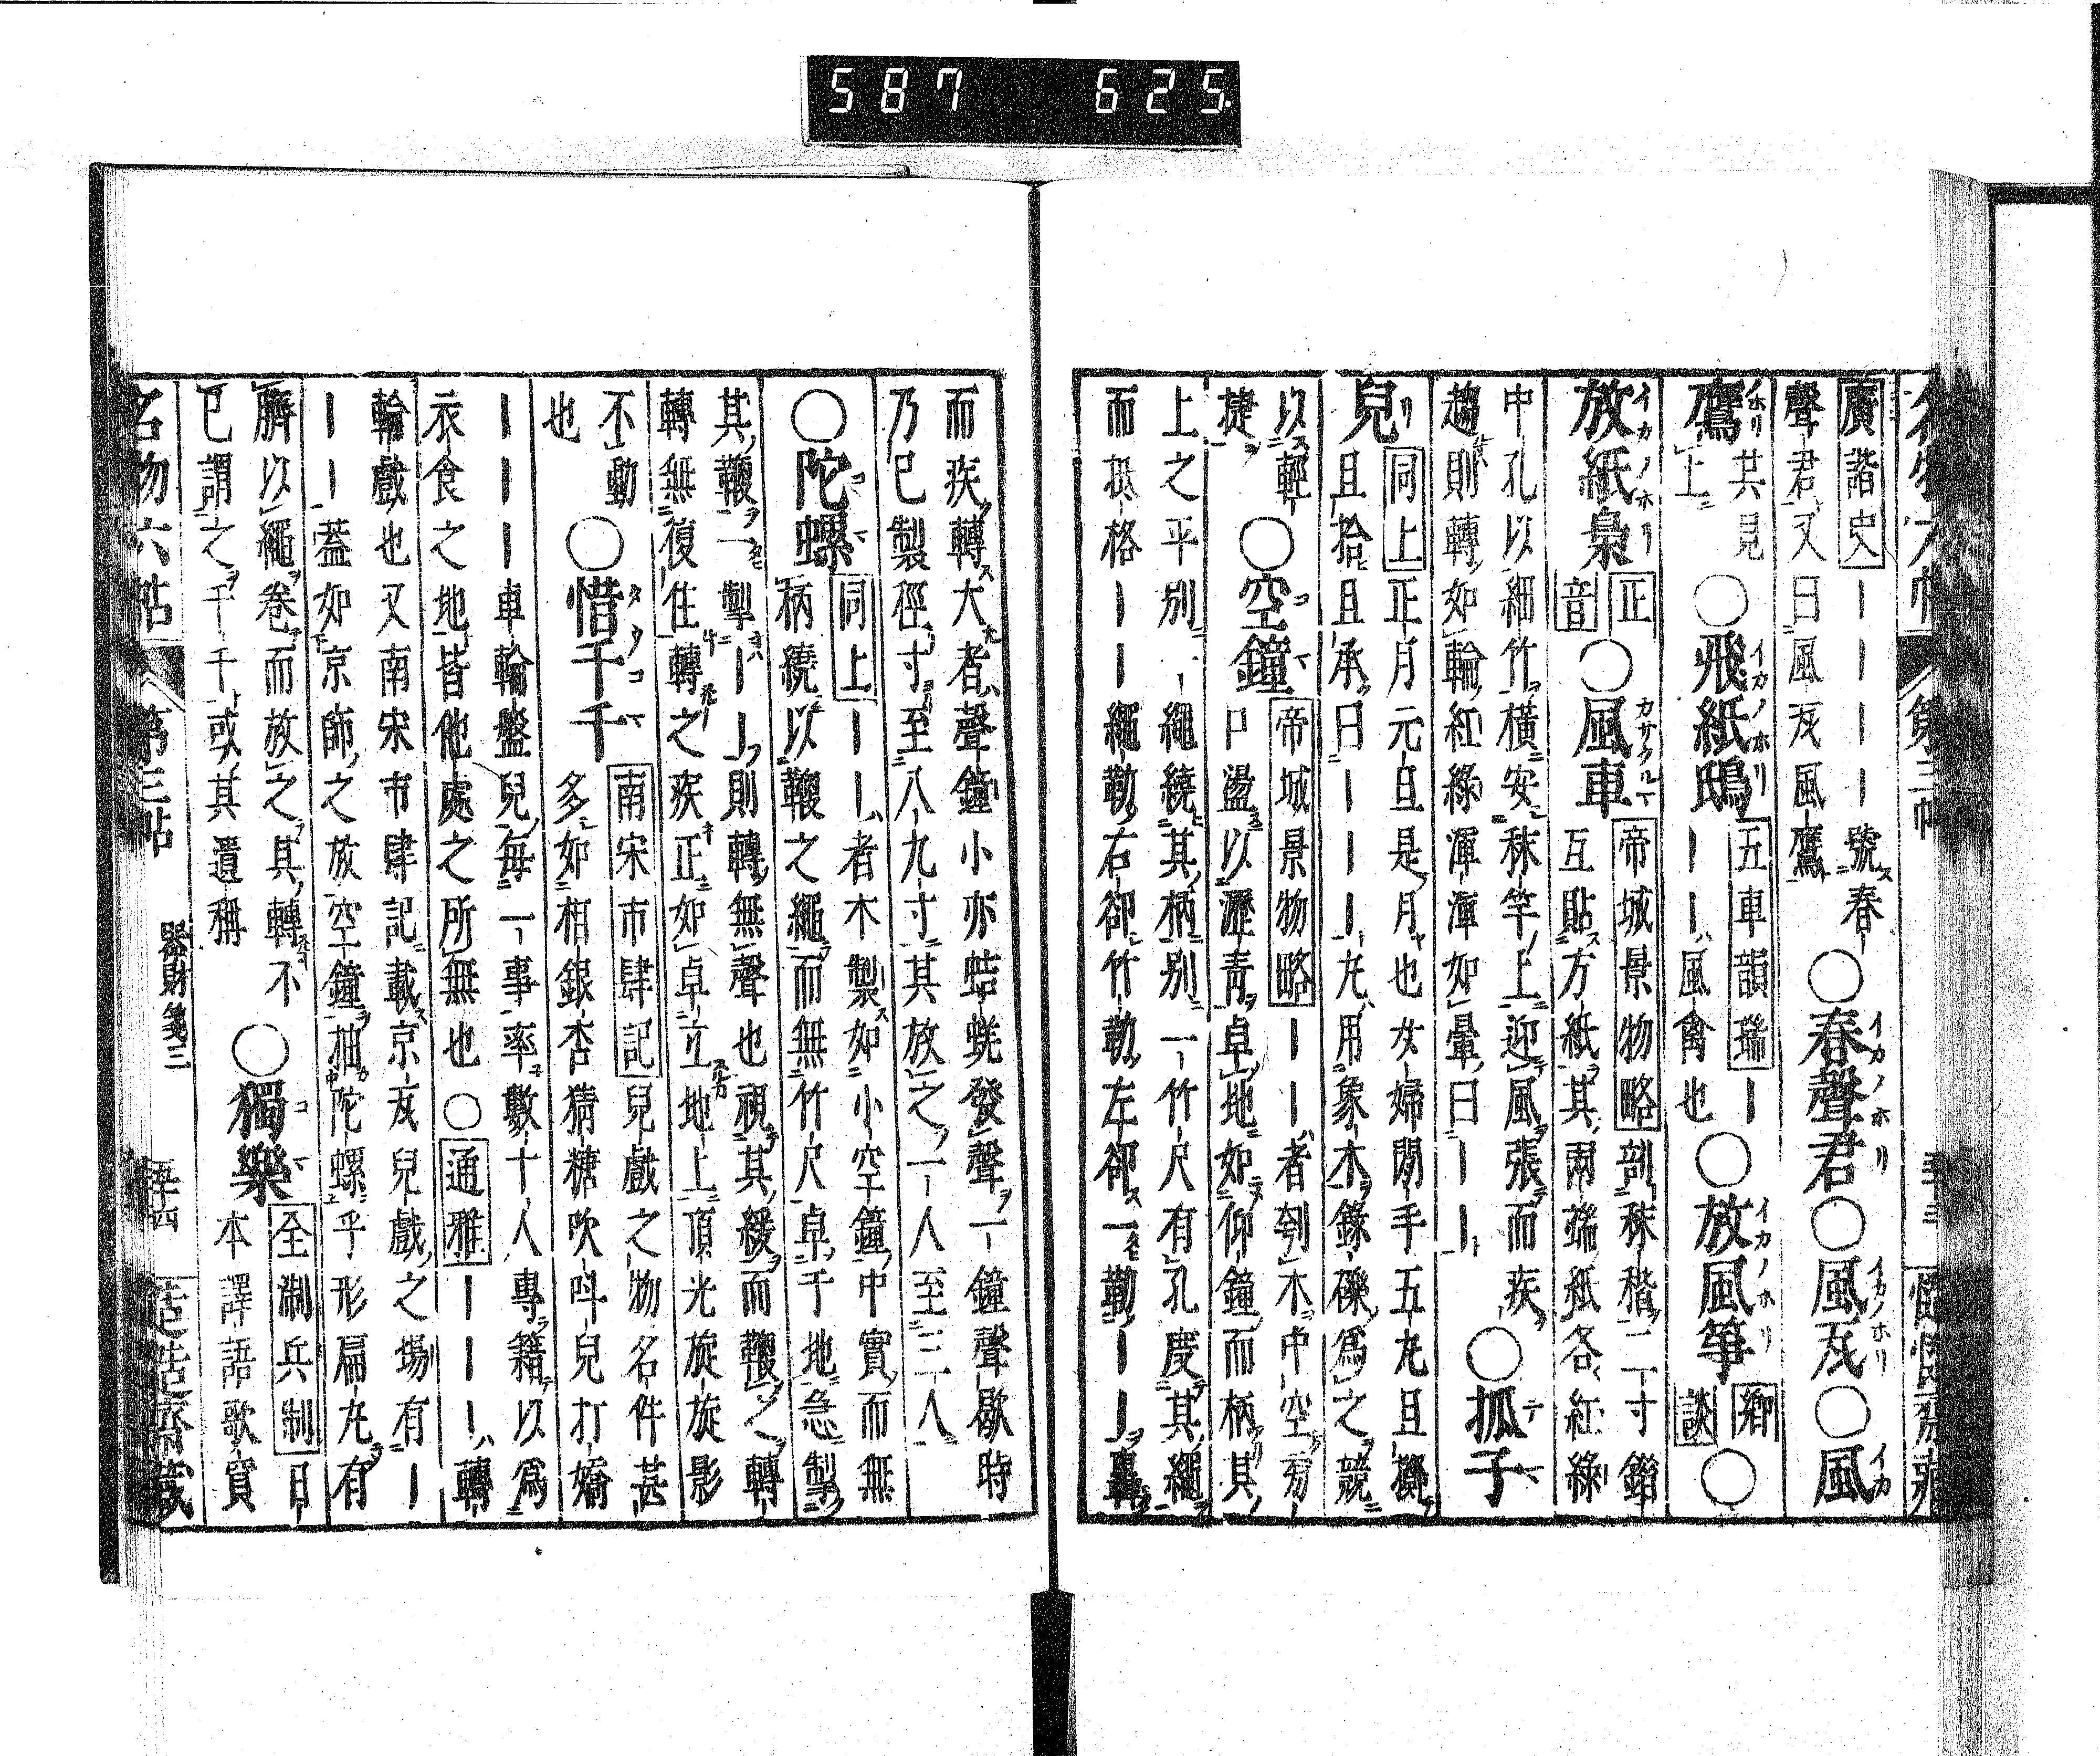 587 625
廣諧史｜｜｜｜號春
聲君又曰風友風鷹
○春聲君○風友○風
鷹
其見
上
○飛紙鴟
五車韻瑞｜
｜｜風禽也
○放風箏
鄉
談
○
放紙梟
正
音
○風車
帝城景物略剖秫稭二寸錯
互貼方紙其兩端紙各紅綠
中孔以細竹橫安秫竿上迎風張而疾
趨則轉如輪紅綠渾渾如暈曰｜｜
○抓子
兒
同上正月元旦是月也女婦閒手五丸且擲
且拾且承曰｜｜｜丸用象木銀礫爲之競
以輕
捷
○空鐘
帝城景物略｜｜者刳木中空旁
口盪以瀝青卓地如仰鐘而柄其
上之平別一繩繞其柄別一竹尺有孔度其繩
而抵格｜｜繩勒右卻竹勒左卻一勒｜｜轟
而疾轉大者聲鐘小亦蛣蜣發聲一鐘聲歇時
乃已製徑寸至八九寸其放之一人至三人
○陀螺
同上｜｜者木製如小空鐘中實而無
柄繞以鞭之繩而無竹尺卓于地急掣
其鞭一掣｜｜則轉無聲也視其緩而鞭之轉
轉無復住轉之疾正如卓立地上頂光旋旋影
不動
也
○惜千千
南宋市肆記兒戲之物名件甚
多如相銀杏猜糖吹叫兒打嬌
｜｜｜車輪盤兒每一事率數十人專籍以爲
衣食之地皆他處之所無也○通雅｜｜｜轉
輪戲也又南宋市肆記載京友兒戲之場有｜
｜｜蓋如京師之放空鐘抽陀螺乎形扁丸有
臍以繩卷而放之其轉不
已謂之千千或其遺稱
○獨樂
全浙兵制日
本譯語歌寶
名物六帖 第三帖 器財箋三 五十四